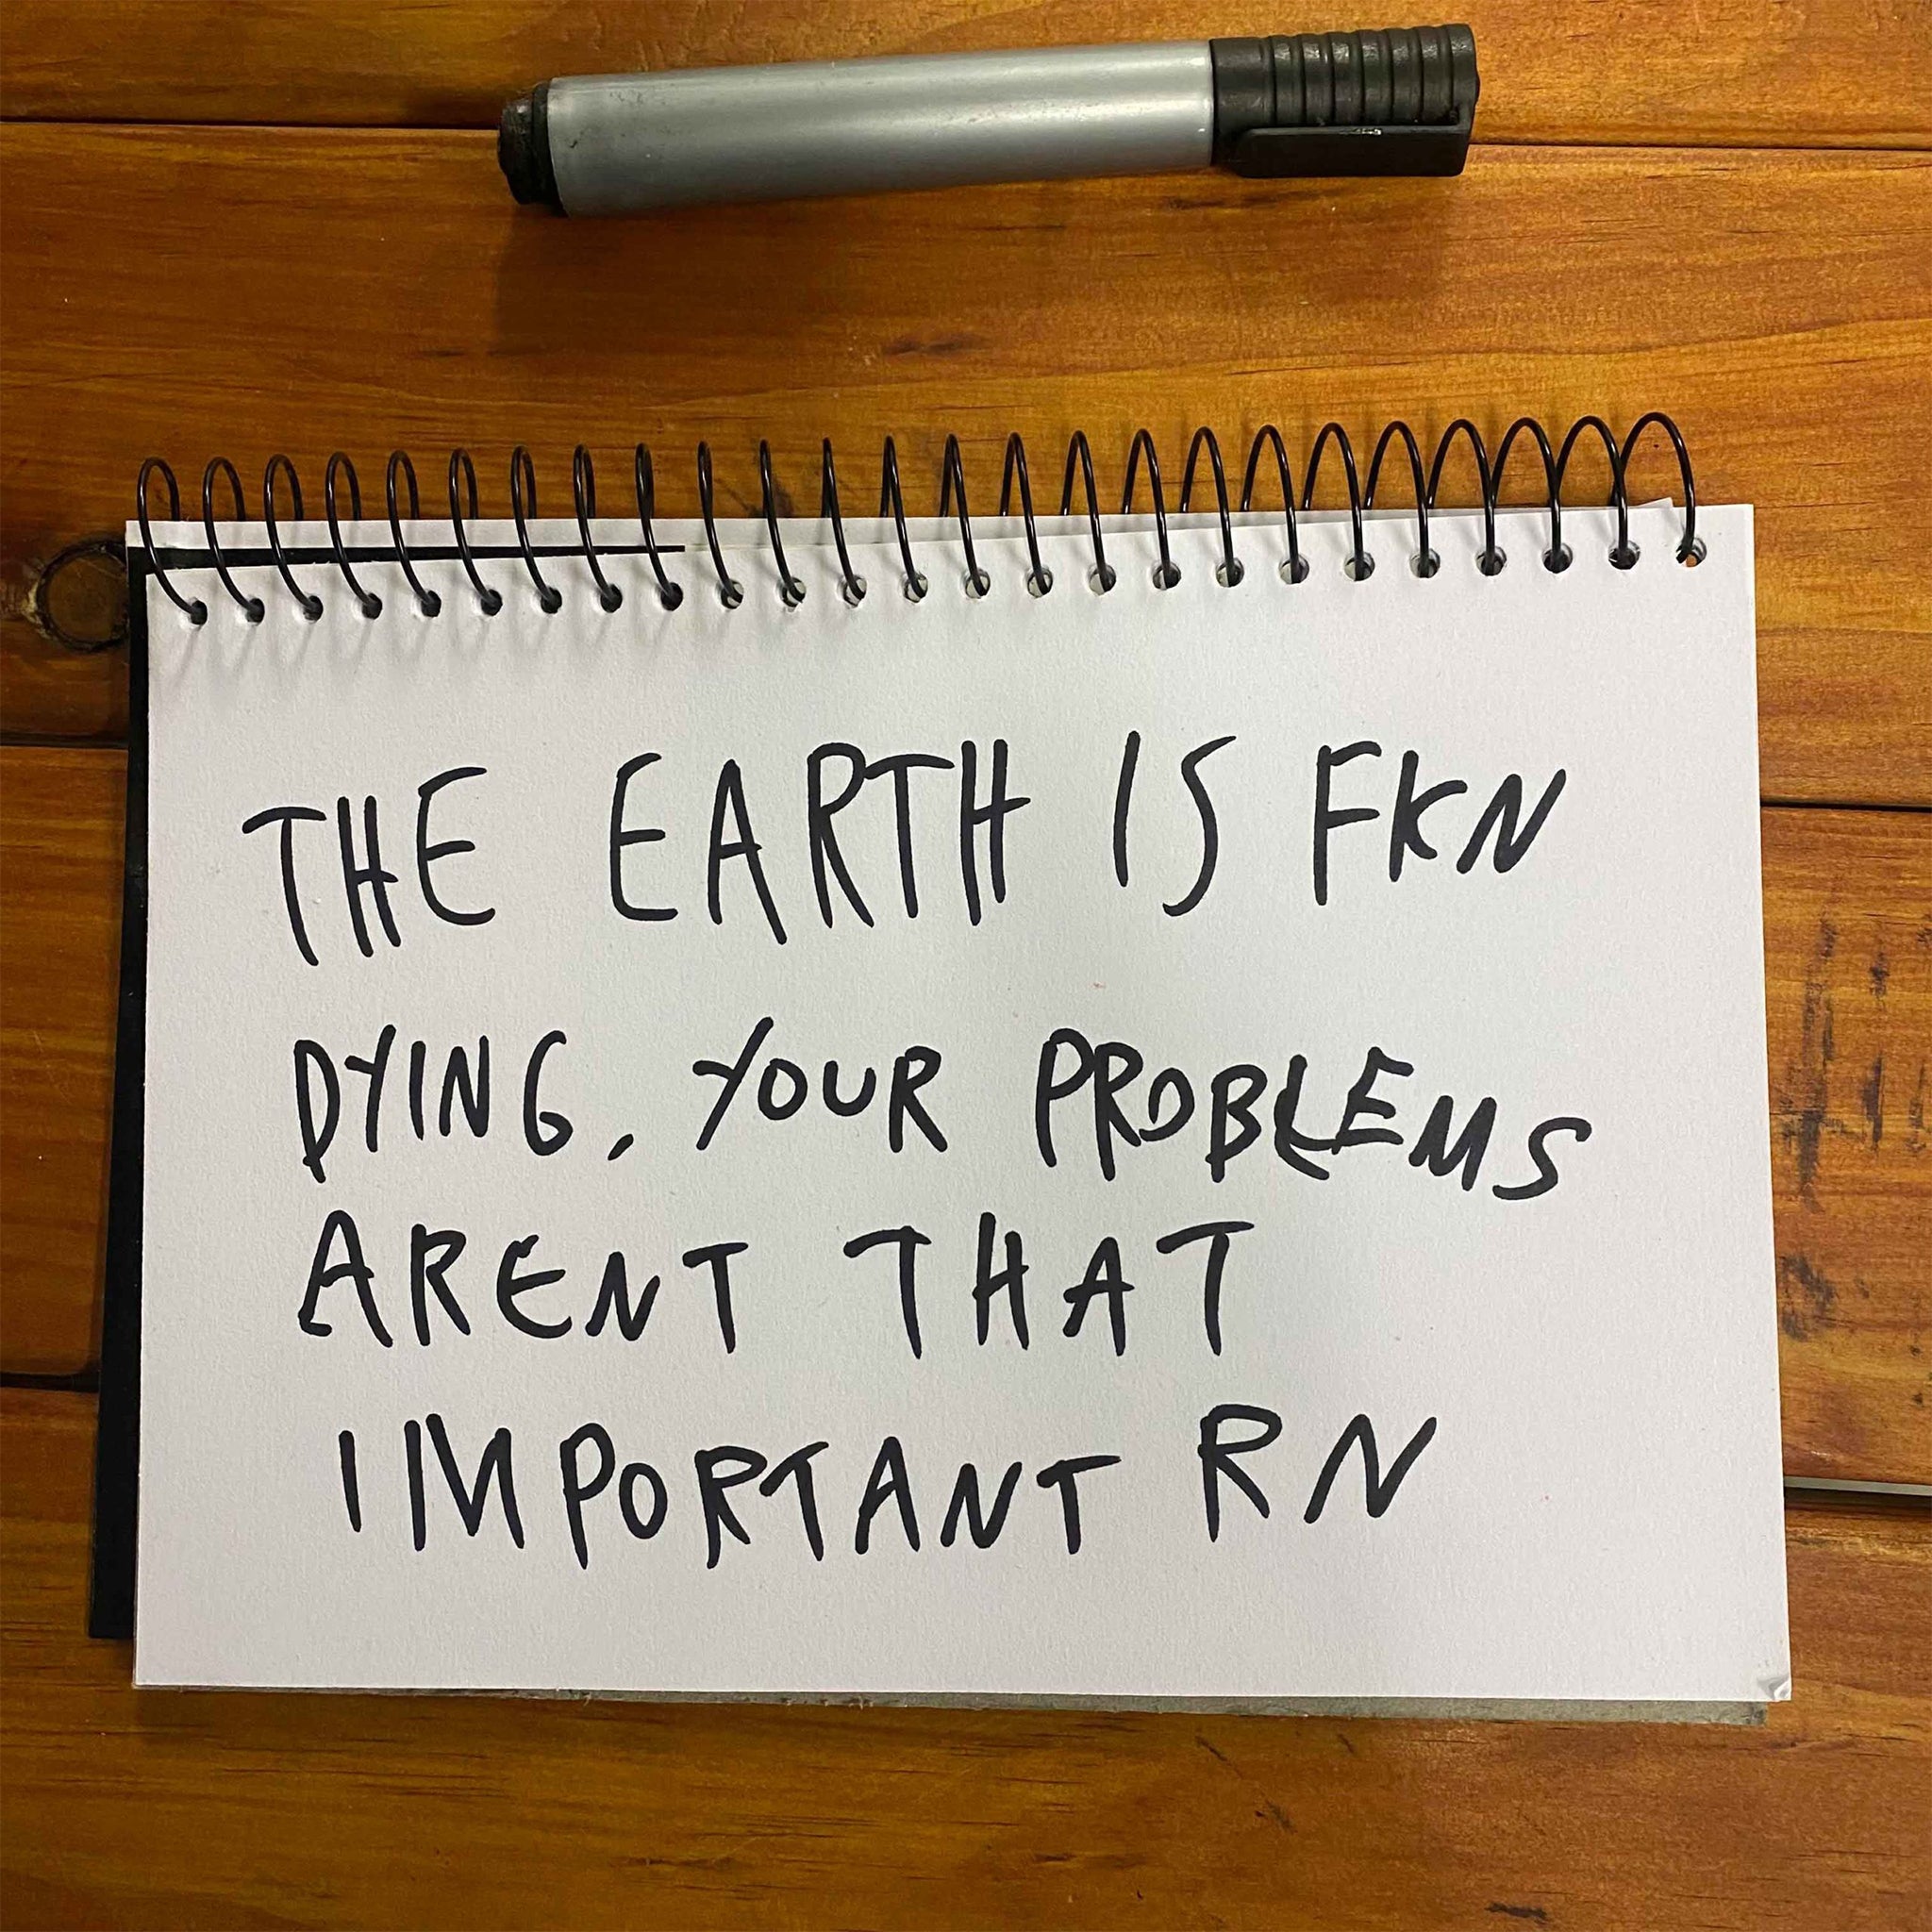 THE EARTH IS FKN
DYING, YOUR PROBLEMS
ARENT THAT
IMPORTANT RN